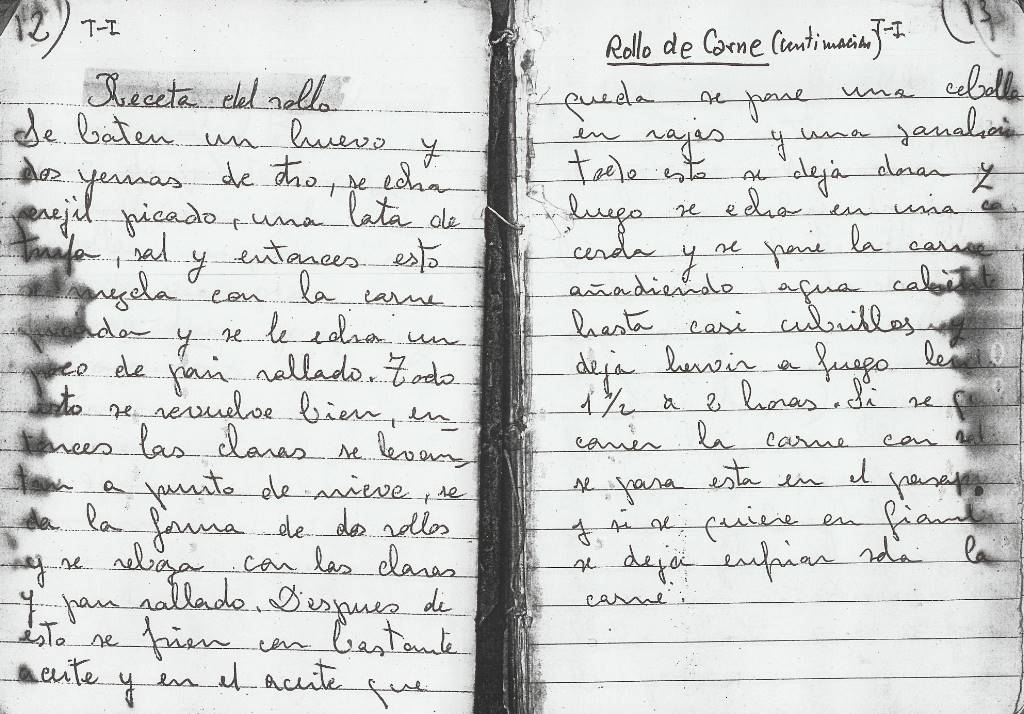 12) T-I
Receta del rollo
Se baten un huevo y
dos yemas de otro, se echa
perejil picado, una lata de
trufa, sal y entonces esto
se mezcla con la carne
picada y se le echa un
poco de pan rallado. Todo
esto se revuelve bien, en-
tonces las claras se levan-
tan a punto de nieve, se
da la forma de dos rollos
y se reboza con las claras
y pan rallado. Despues de
esto se frien con bastante
aceite y en el aceite que
(13
Rollo de Carne (continuacion) T-I
queda se pone una cebolla
en rajas y una zanahori
todo esto se deja dorar y
luego se echa en una ca
cerola y se pone la carne
añadiendo agua caliente
hasta casi cubrirlos y
deja hervir a fuego len
1 1/2 a 2 horas. Si se
comer la carne con sal
se pasa esta en el pasap.
y si se quiere en fiamb
se deja enfriar sola la
carne.